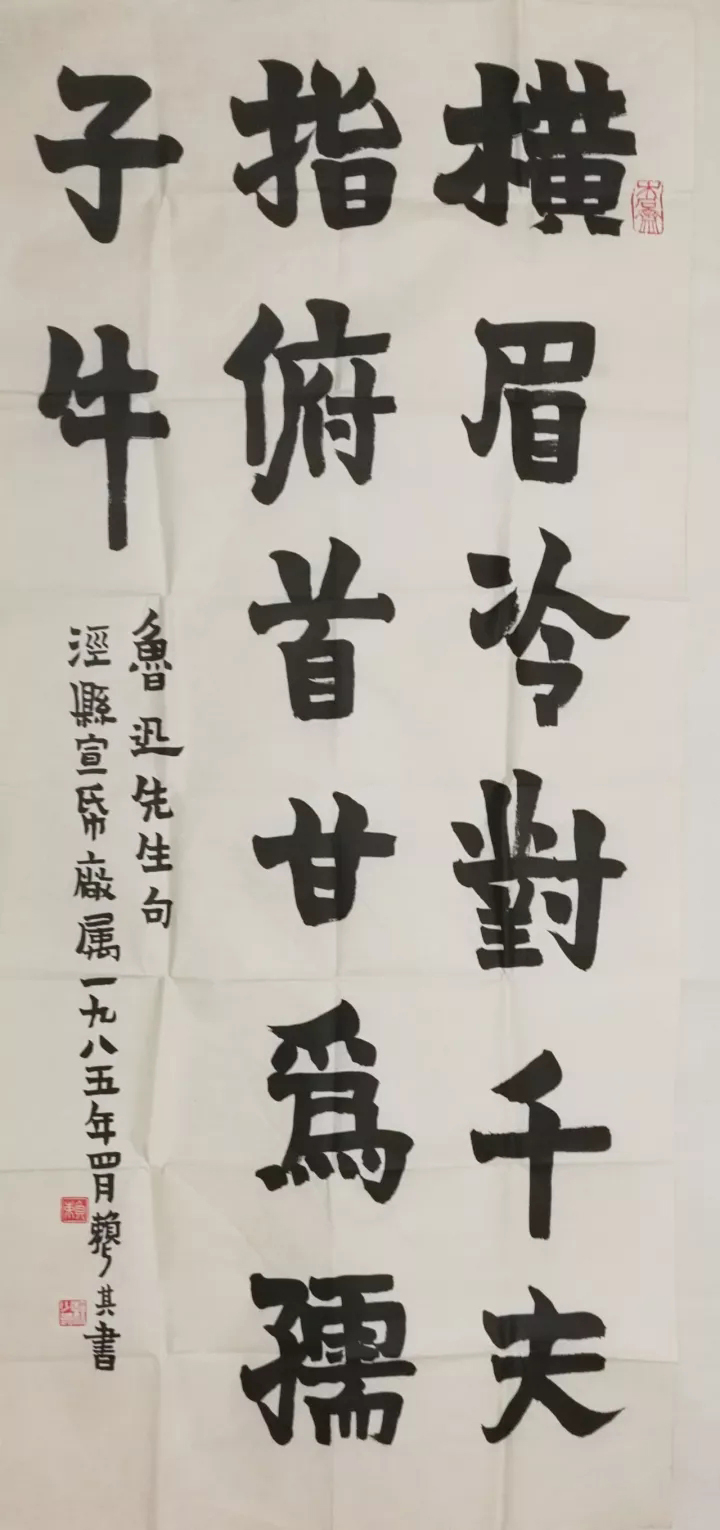 橫眉冷對千夫
指俯首甘爲孺
子牛
魯迅先生句
涇縣宣帋廠属一九八五年四月賴少其書